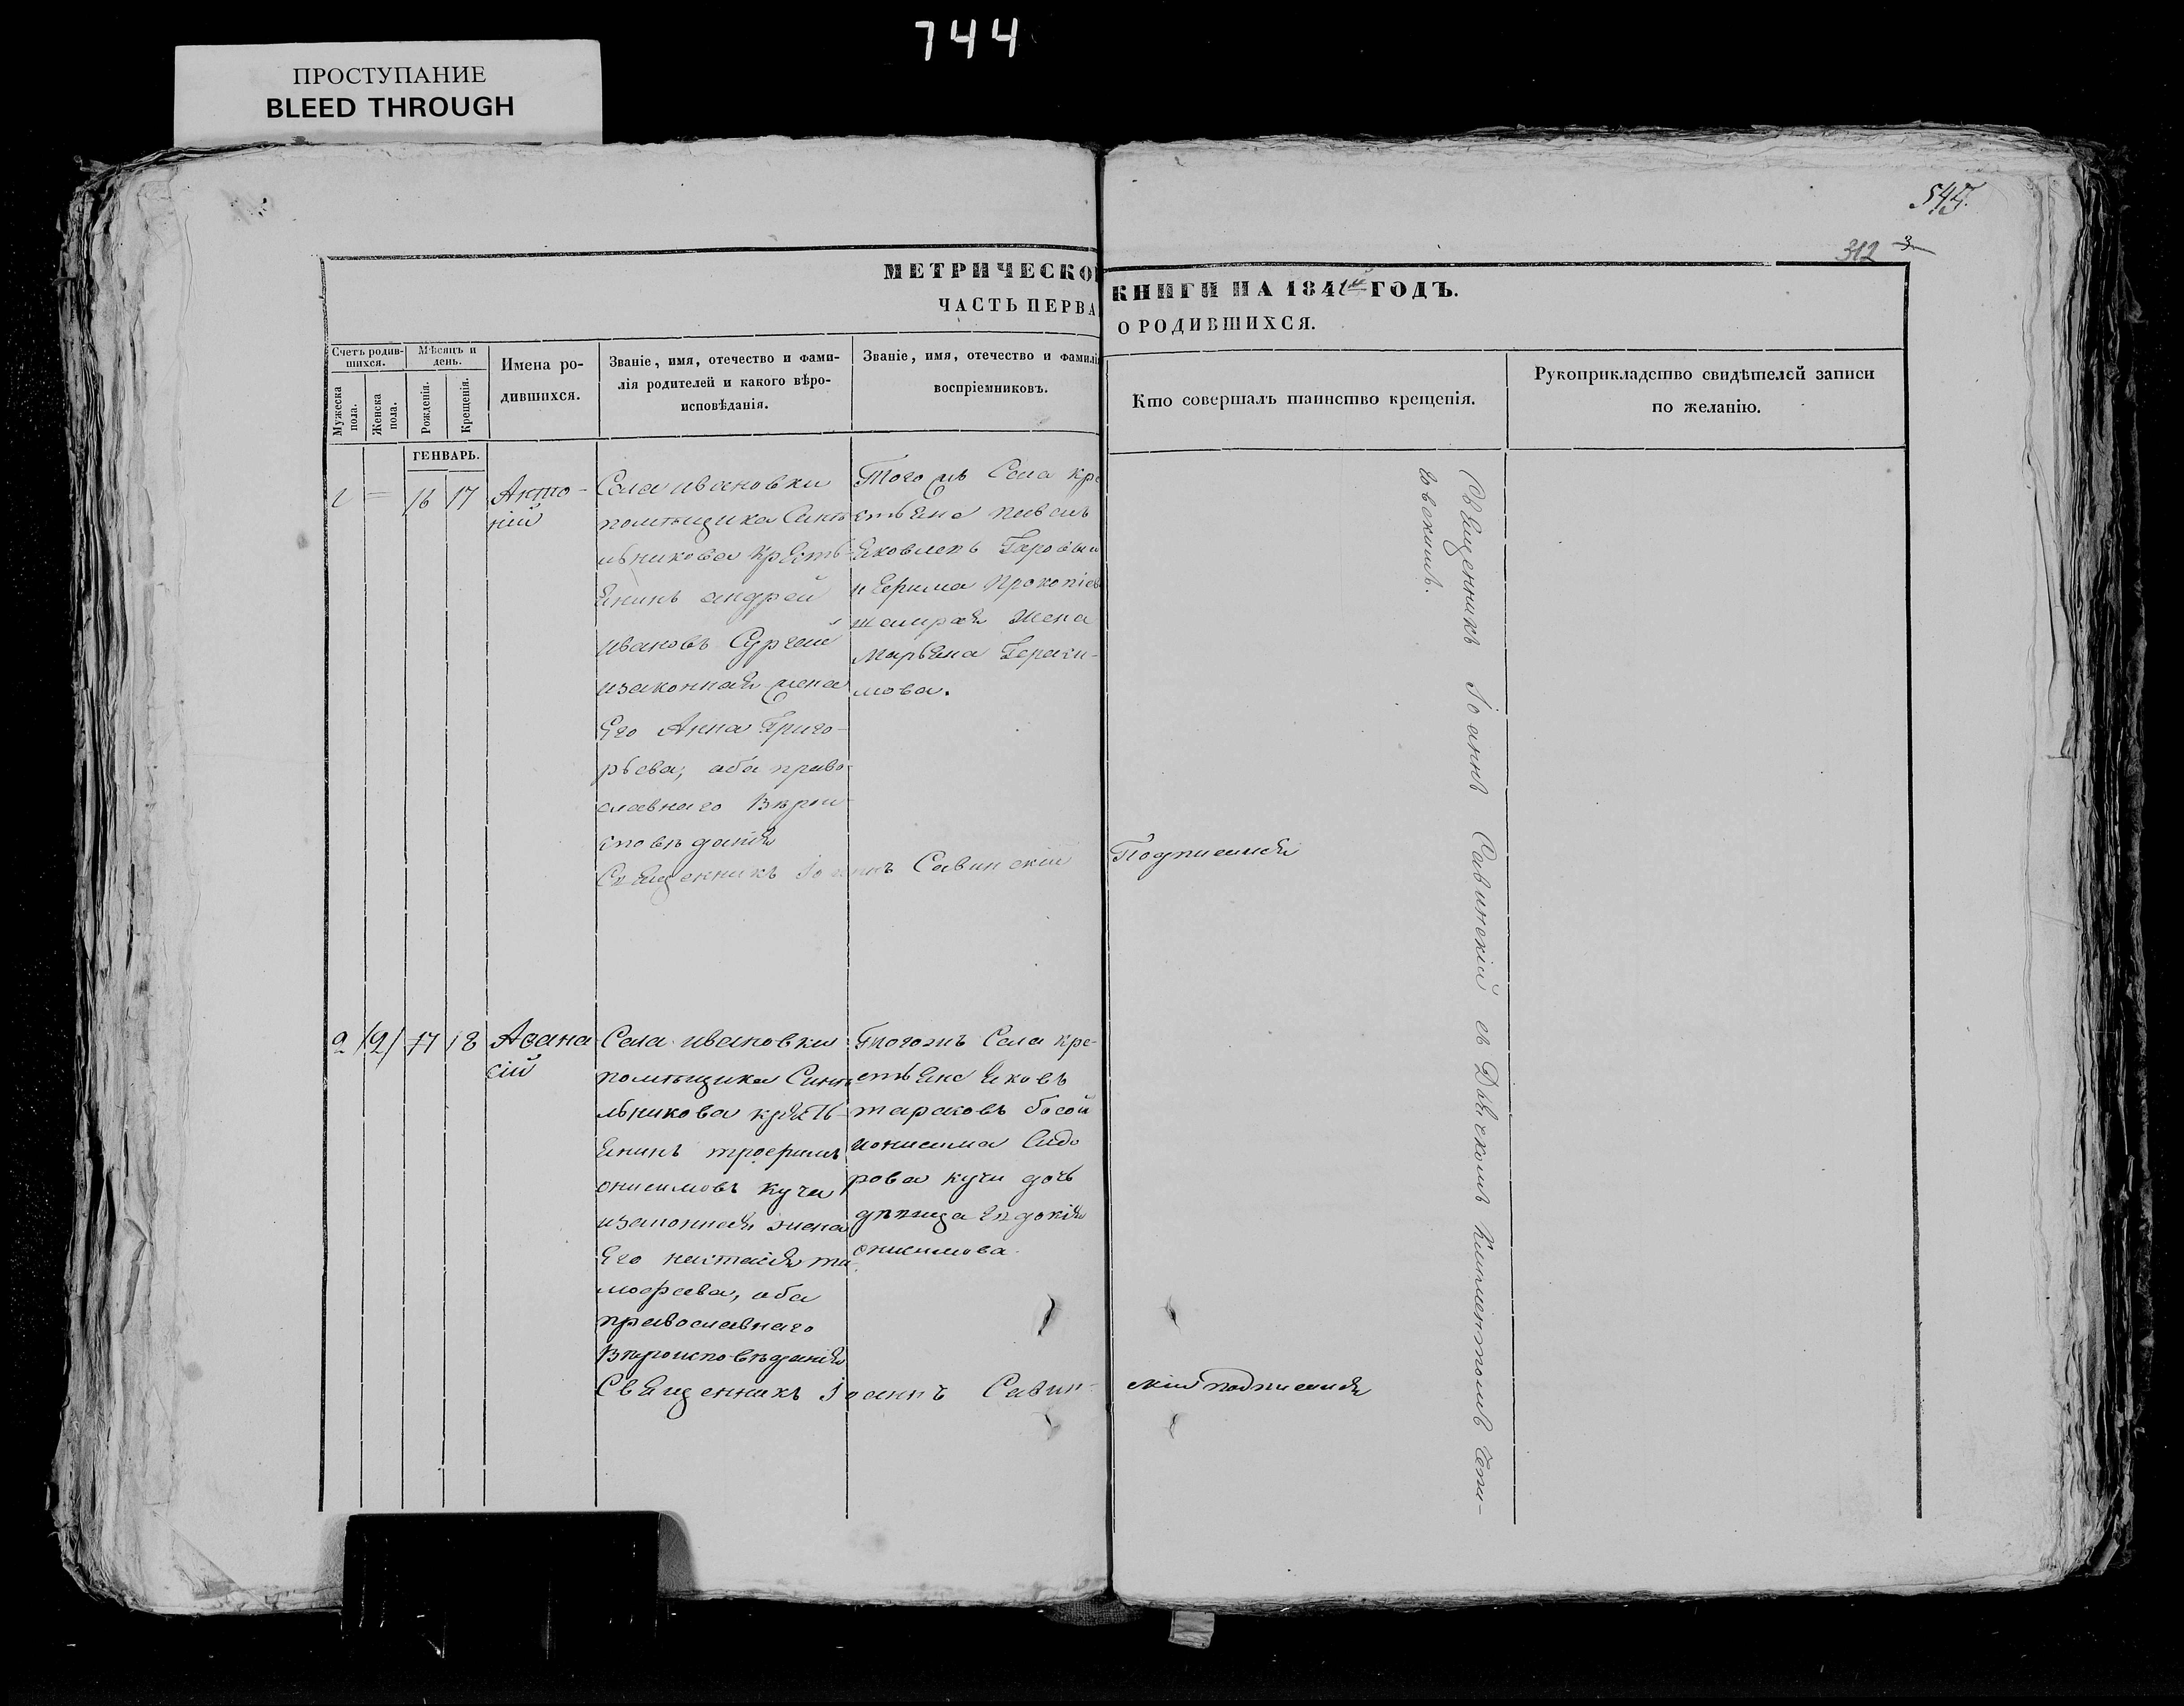 744
ПРОСТУПАНИЕ
BLEED THROUGH
545.
312
3
МЕТРИЧЕСКО
КНИГИ НА 184 ГОДЪ.
ЧАСТЬ ПЕРВА
О РОДИВШИХСЯ.
Счетъ родив-
шихся.
Мужеска
пола.
Женска
пола.
Мѣсяцъ и
день.
Рожденія.
Крещенія.
Имена ро-
дившихся.
Званіе, имя, отечество и фами-
лія родителей и какого вѣро-
исповѣданія.
Званіе, имя, отечество и фамилі
воспріемниковъ.
Кто совершалъ таинство крещенія.
Рукоприкладство свидѣтелей записи
по желанію.
ГЕНВАРЬ.
16 17
Анто-
ній
Села Ивановки
помѣщика Синѣ
льникова крестъ-
Янинъ андрей
ивановъ
изаконная жена
Его Анна Григо-
рьева, оба право-
славнаго Вѣрои-
сповѣданія
Священникъ Іоаннъ Савинскій
Подписался
Тогожъ Села кре
стьяне павелъ
Яковлевъ
и Прокопіев
жена
Марьяна Гераси-
мова.
2 /2/ 17 18
Аѳана
сій
Села Ивановки
помѣщика Синѣ
льникова крестъ-
Янинъ трофимъ
онисимовъ Куча
изаконная жена
Его настасія ти-
мофеева, оба
православнаго
Вѣроисповѣданія
Священникъ Іоаннъ Савин-
скій подписался
Тогожъ Села кре-
стьяне Яковъ
тарасовъ босой
ионисима Сидо
рова кучи дочь
дѣвица Евдокія
онисимова.
Священникъ Іоаннъ Савинскій съ Дьячкомъ Климентомъ